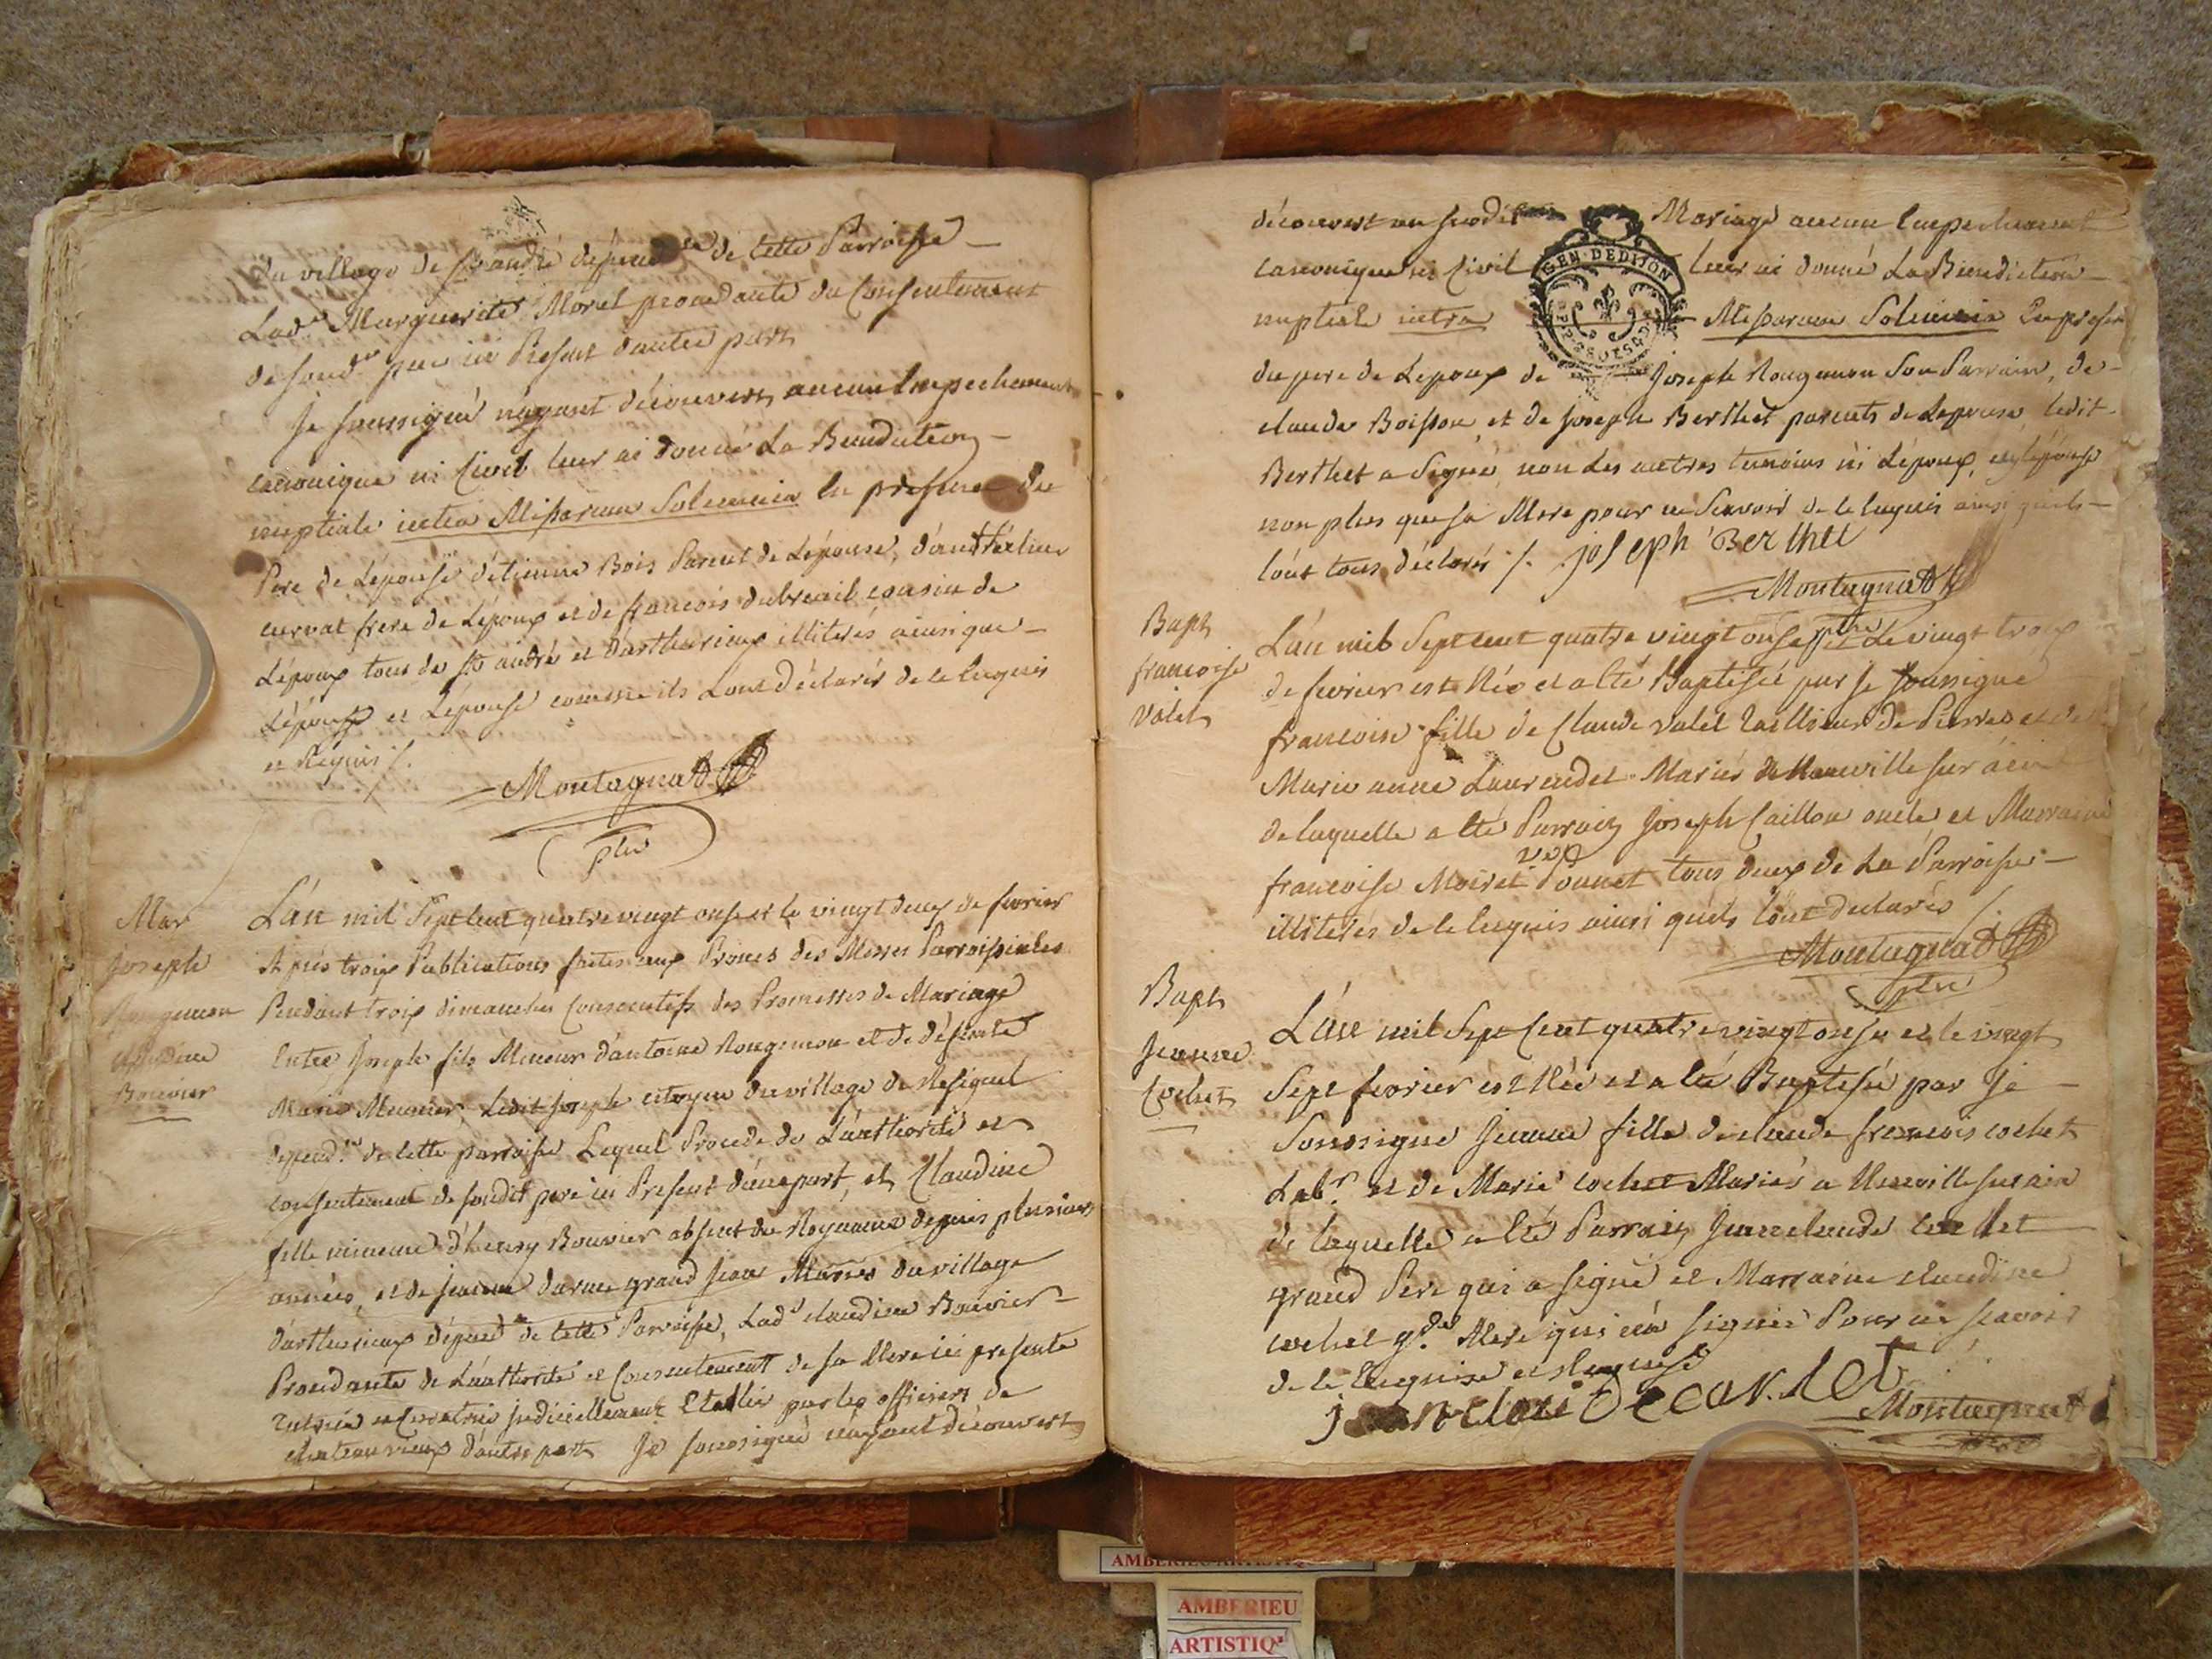 du village de St andré depend.te de Cette Parroisse
Lad.te Marguerite Morel procedante du Consentement
de soud.t pere ici Present d'autre part
Je soussigné n'ayant découvert aucun Empechement
canonique ni Civil leur ai donné La Benediction
nuptiale intra Missarum Solemnia En presence du
Pere de L'épouse d'étienne Bois Parent de L'épouse, d'anthelme
curvat frere de L'époux et de francois dubreuil cousin de
L'époux tous de St andré et d'arthurieux illiterés ainsi que
L'époux et L'épouse comme ils L'ont déclarés de ce Enquis
et Requis /.
Montagnat
ptre
Mar
joseph
Rougemon
claudine
Bouvier
L'an mil sept Cent quatre vingt onse et le vingt deux de fevrier
Après trois Publications faites aux Prones des Messes Parroissiales
Pendant trois dimanches Consecutifs des Promesses de Mariage
Entre Joseph fils Mineur d'antoine Rougemon et de défunte
Marie Meunier, Ledit joseph citoyen du village de
depend.ce de Cette parroisse Lequel Procede de L'authorité et
consentement de soudit pere ici Present d'une part, et Claudine
fille mineure d'henry Bouvier absent du Royaume depuis plusieurs
années, et de jeanne darme grand jean Mariés du village
d'arthurieux dépend.ce de Cette Parroisse, Lad.e claudine Bouvier
Procedante de L'authorité et Consentement de sa Mere ici presente
Tutrice et Curatrice judiciellement Etablie par les officiers de
chateauvieux d'autre part Je soussigné n'ayant découvert
découvert au susdit Mariage aucun Empechement
canonique ni Civil leur ai donné La Benediction
GEN·DEDIJON
nuptiale intra Missarum Solemnia En presence
du pere de L'époux de Joseph Rougemon Son Parrain, de
claude Boisson et de Joseph Berthet parents de L'epouse, ledit
Berthet a Signé non Les autres temoins ni L'époux, ni L'épouse
non plus que sa Mere pour ne Scavoir de ce Enquis ainsi qu'ils
l'ont tous déclarés /. joseph Berthet
Montagnat
ptre
Bapt
francoise
Valet
L'an mil Sept cent quatre vingt onse et Le vingt trois
de fevrier est Née et a Eté Baptisée par Je soussigné
francoise fille de Claude valet Tailleur de Pierres et de
Marie anne Laurendet Mariés de Neuville sur ain
de laquelle a Eté Parrain Joseph Caillon oncle et Marraine
francoise Moiret Ponnet tous deux de La Parroisse
illiterés de ce Enquis ainsi qu'ils L'ont declarés /.
Montagnat
ptre
Bapt
Jeanne
Cochet
L'an mil Sept Cent quatre vingt onse et le vingt
Sept fevrier est Née et a Eté Baptisée par Je
Soussigné Jeanne fille de claude francois cochet
Lab.r et de Marie cochet Mariés a Neuville sur ain
de laquelle a Eté Parrain Jean claude cochet
grand Pere qui a signé et Marraine claudine
cochet g.de Mere qui n'a signée Pour ne scavoir
de ce Enquise et Requise
jean claude
Montagnat
ptre
AMBERIEU ARTISTIQ
AMBERIEU
ARTISTIQ'